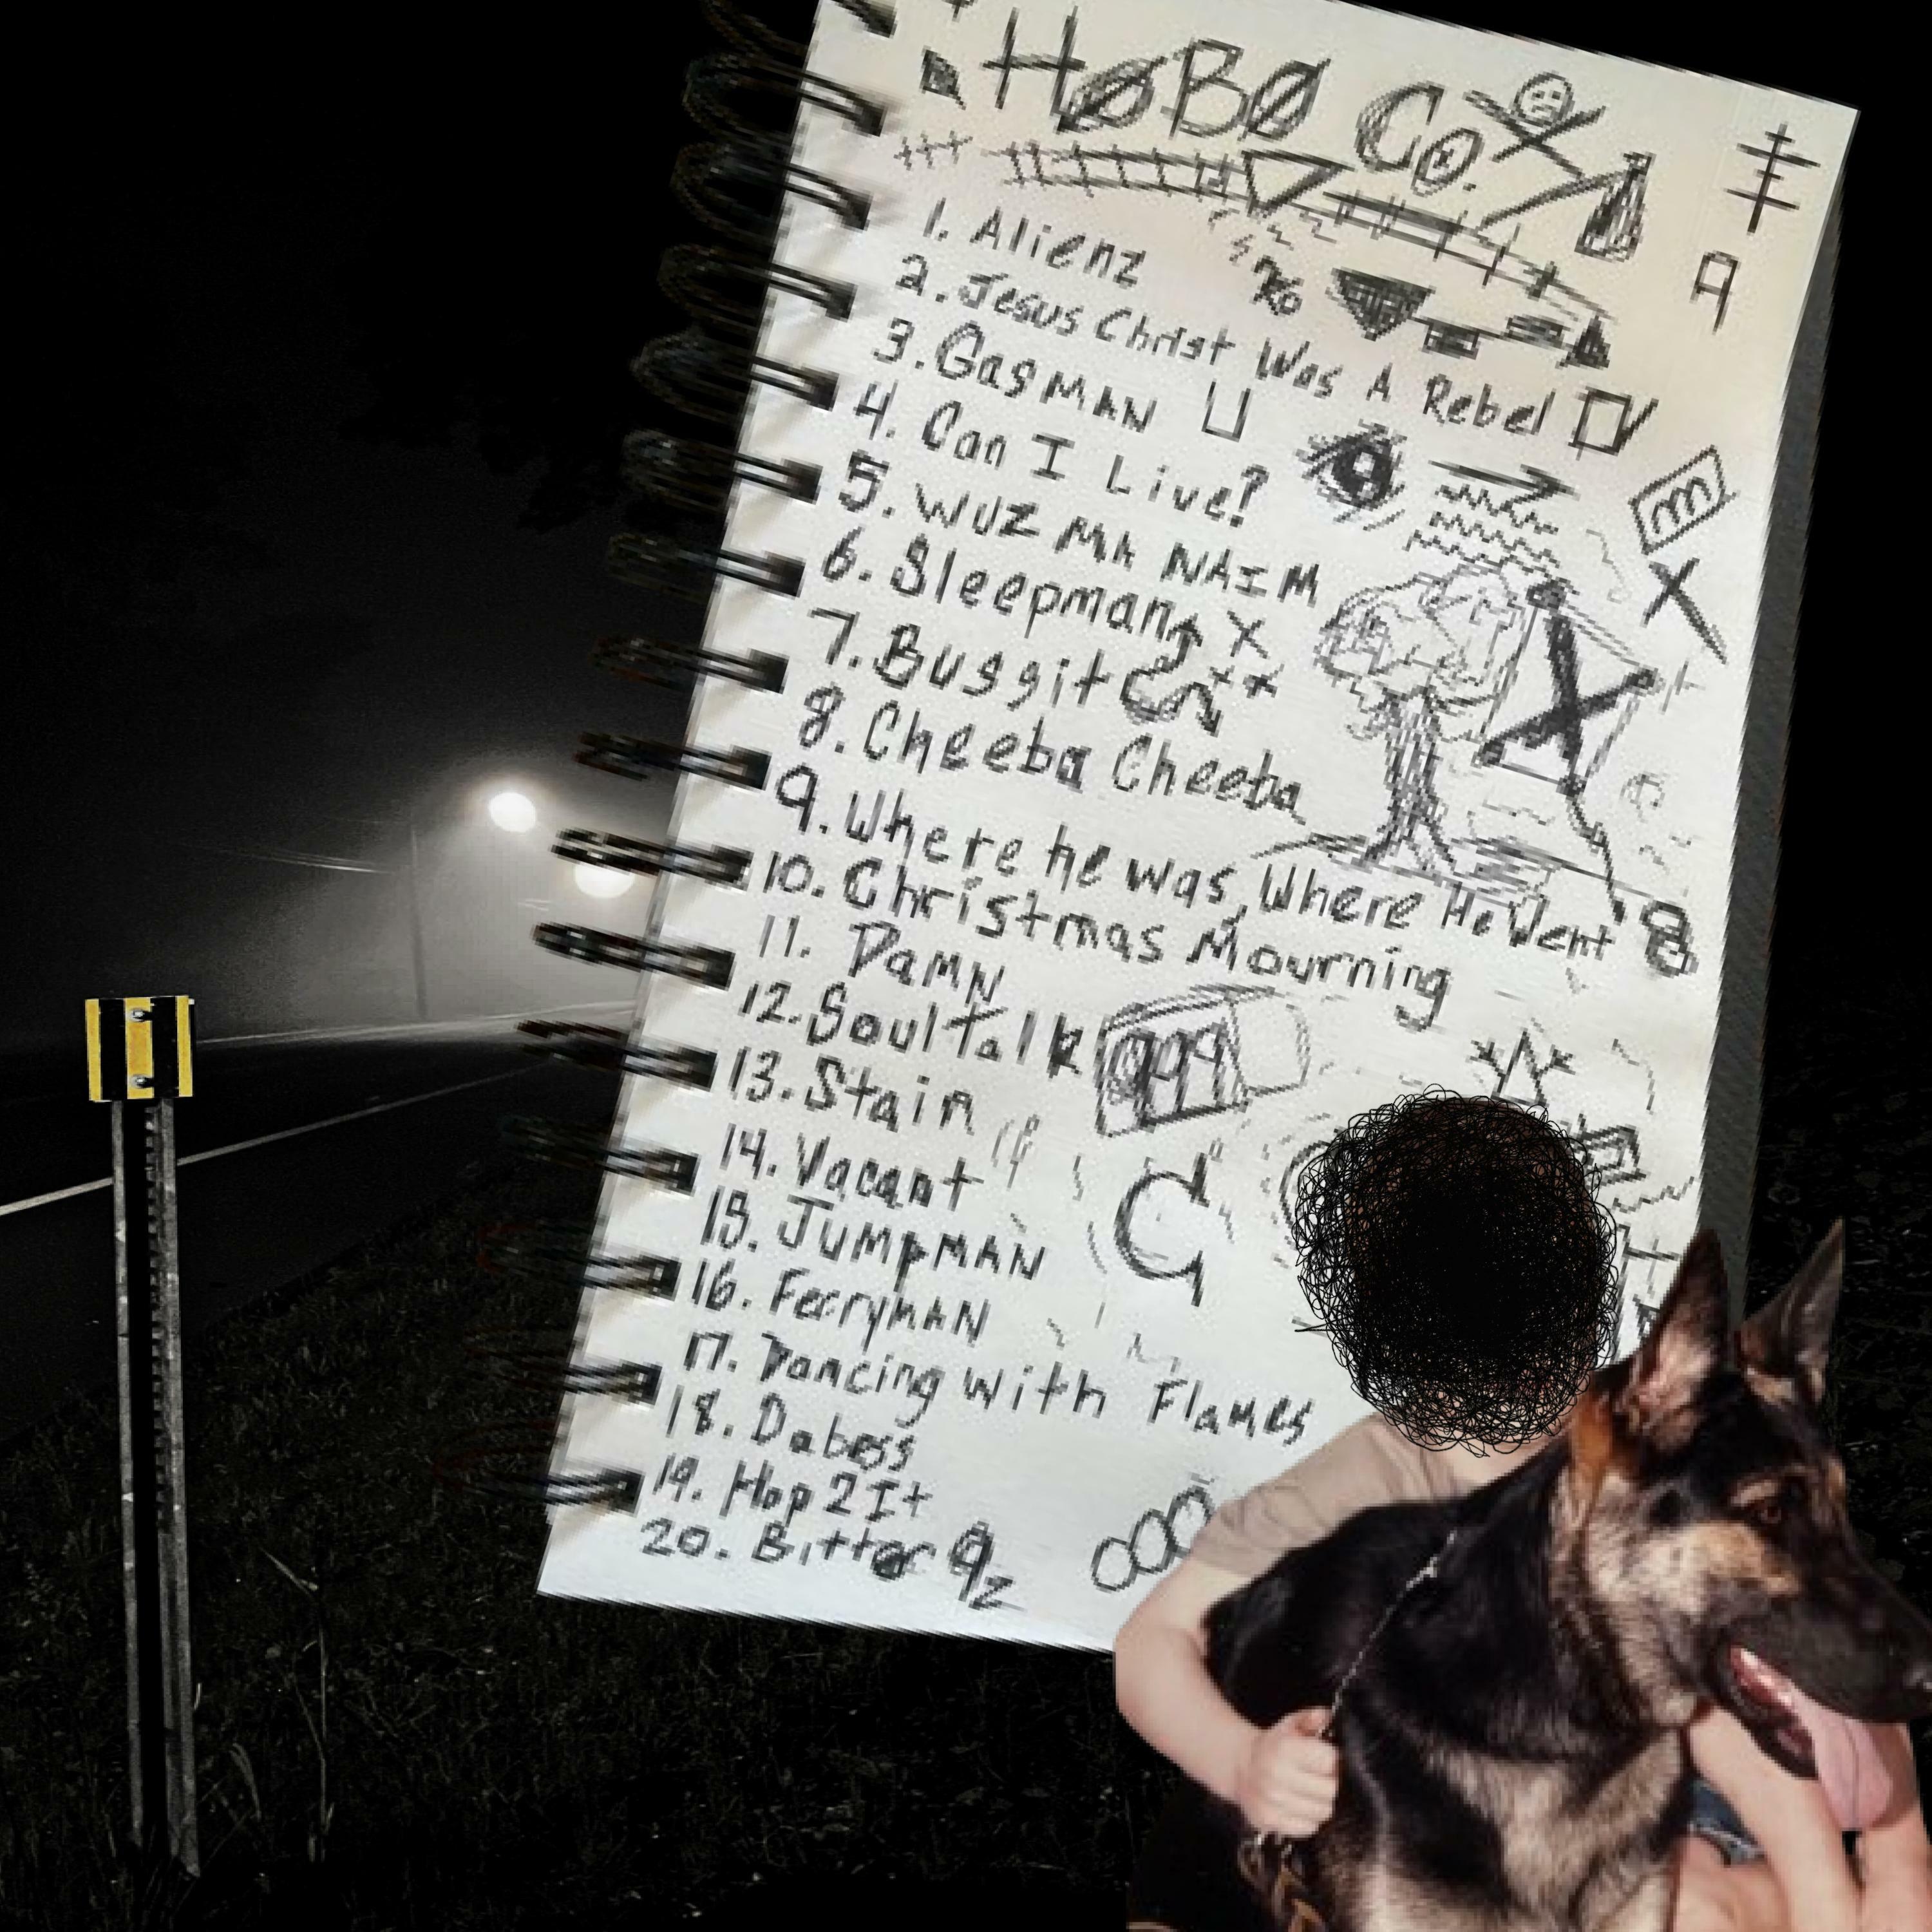 HØBØ CO.
9
1. Alienz
2. Jesus Christ Was A Rebel
3. GasMAN
4. Can I Live?
5. WUZ MA NAIM
6. Sleepman
7. Buggit
8. Cheeba Cheeba
9. Where he was, Where He Went
10. Christmas Mourning
11. DaMN
12. Soultalk
999
13. Stain
14. Vacant
15. JUMpMAN
16. FerryMAN
17. Dancing with Flames
18. Daboss
19. Hop 2 It
20. Bitter